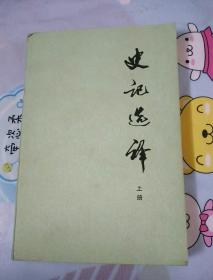 史记选译
上册